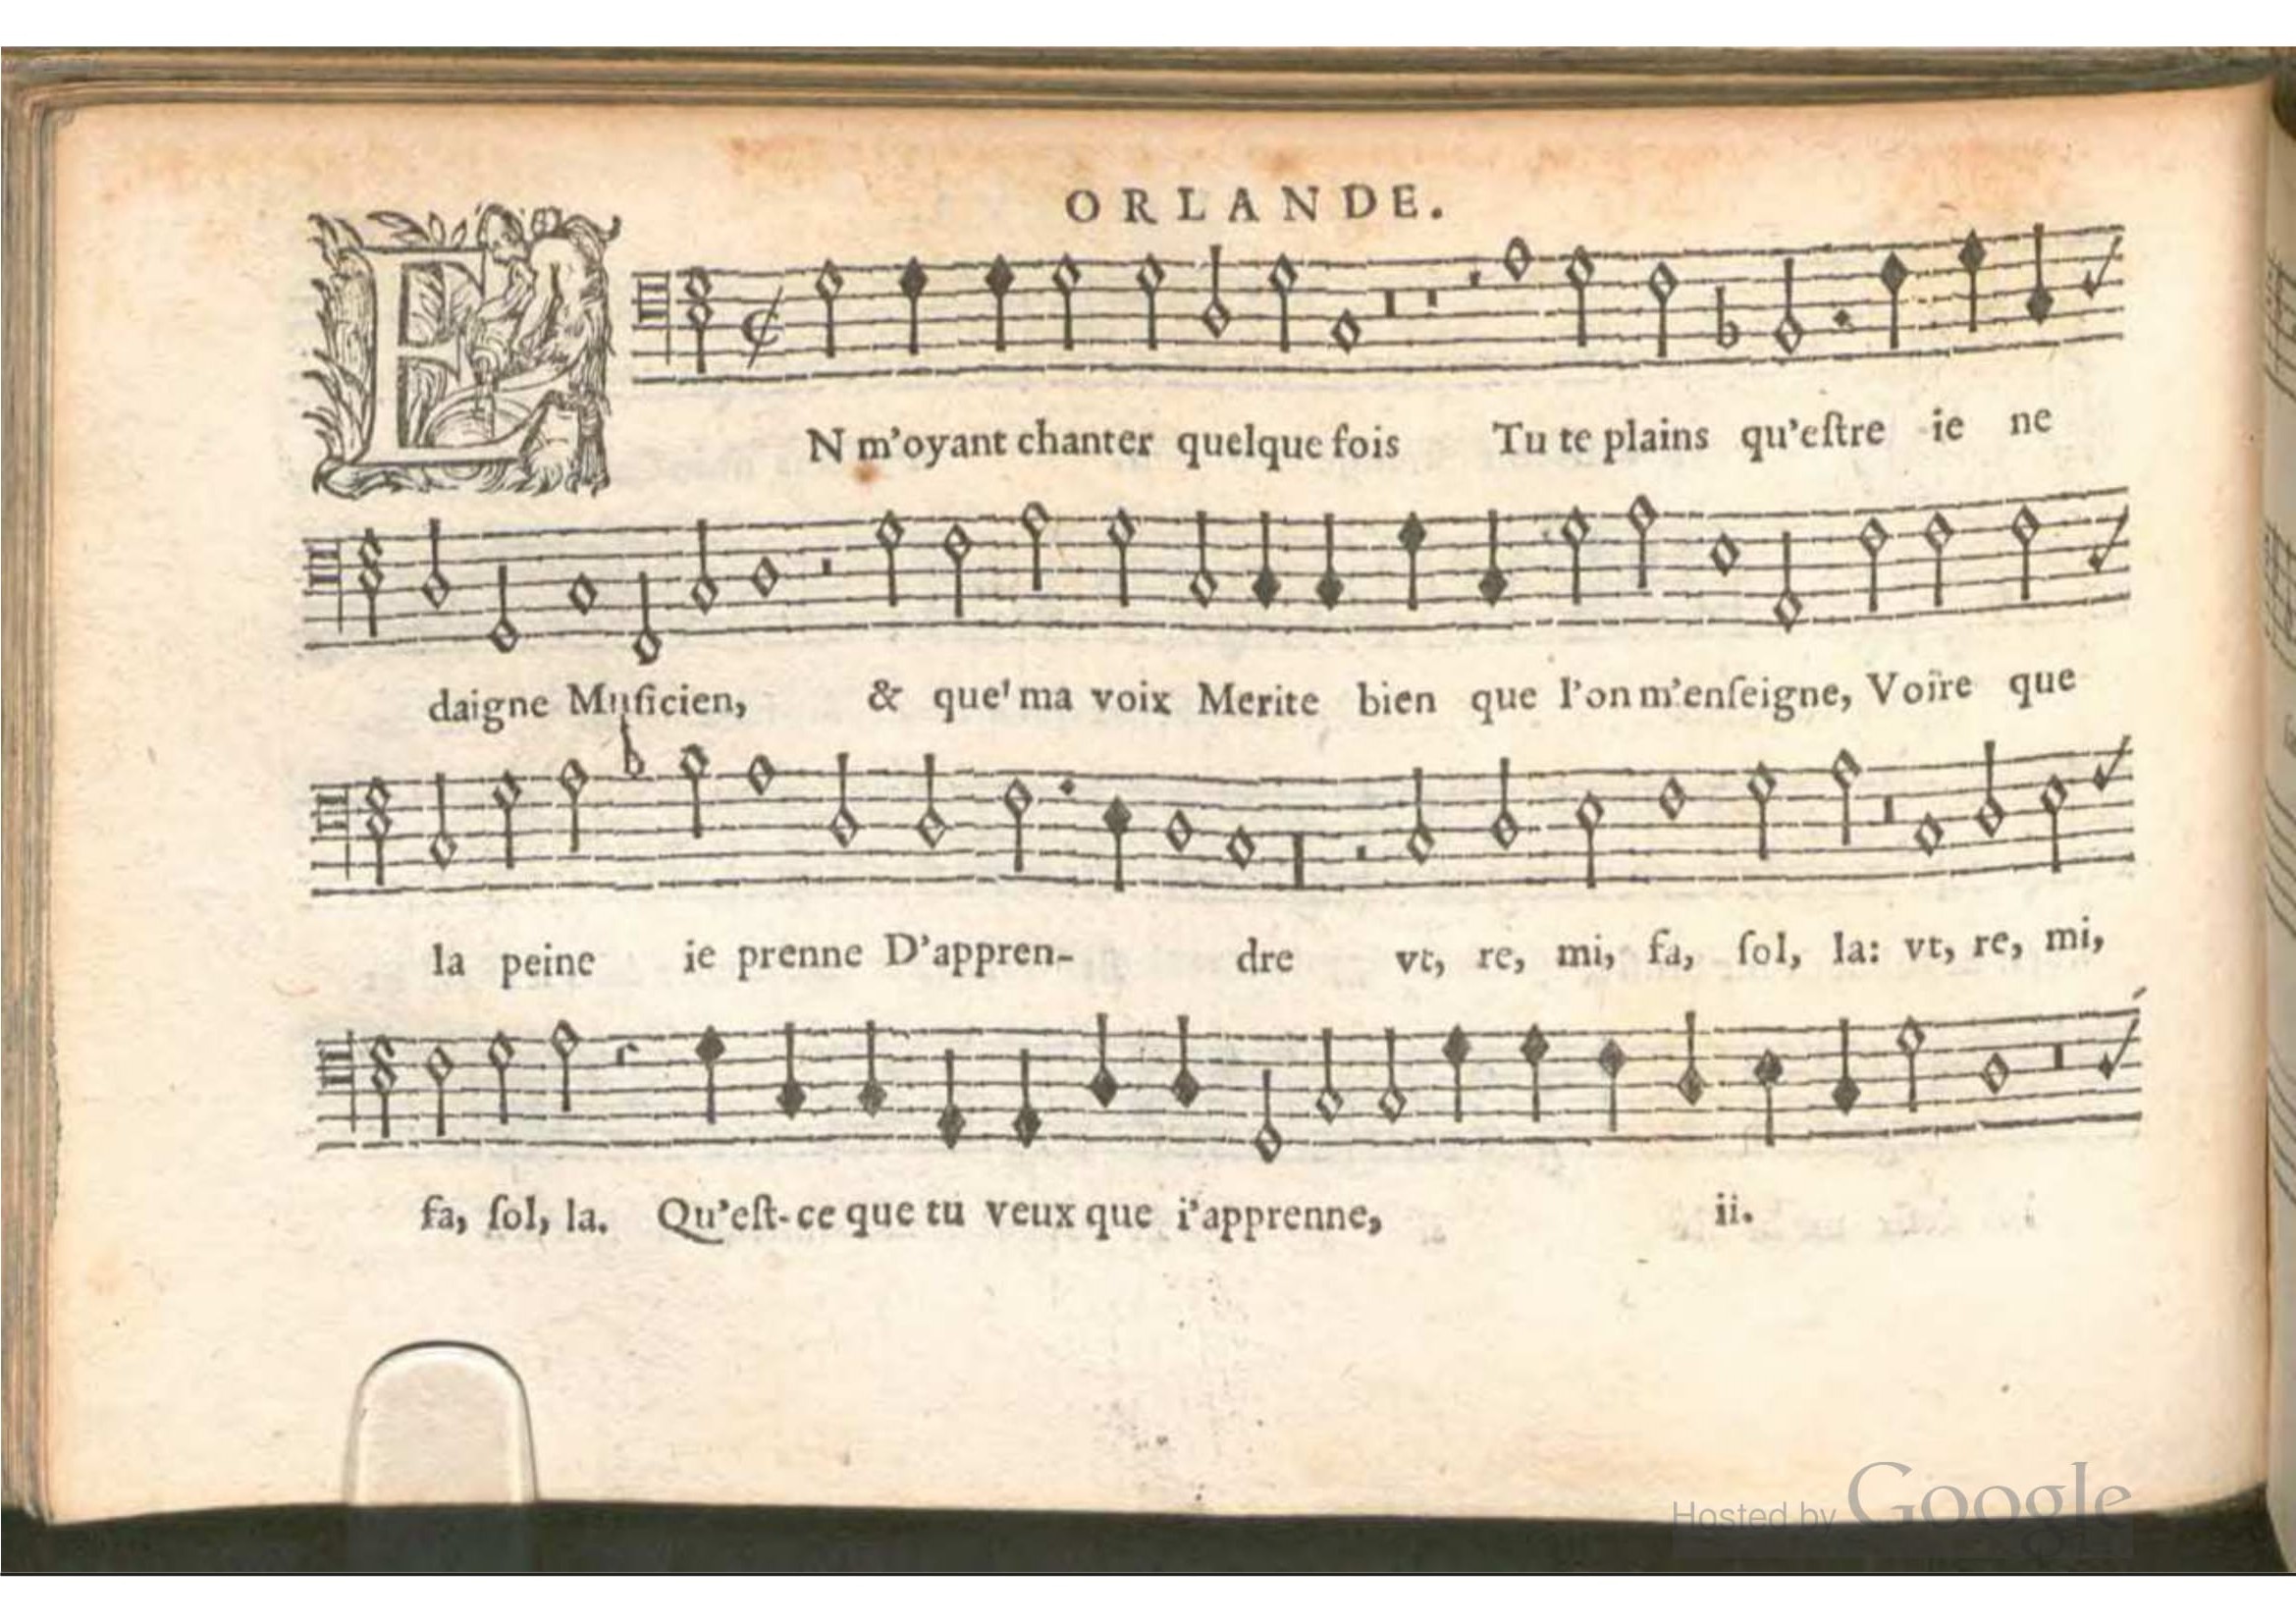 ORLANDE.
EN m'oyant chanter quelque fois Tu te plains qu'eſtre ie ne
daigne Muſicien, & que' ma voix Merite bien que l'on m'enſeigne, Voire que
la peine ie prenne D'appren- dre vt, re, mi, fa, ſol, la: vt, re, mi,
fa, ſol, la. Qu'eſt-ce que tu veux que i'apprenne, ii.
Hosted by Google